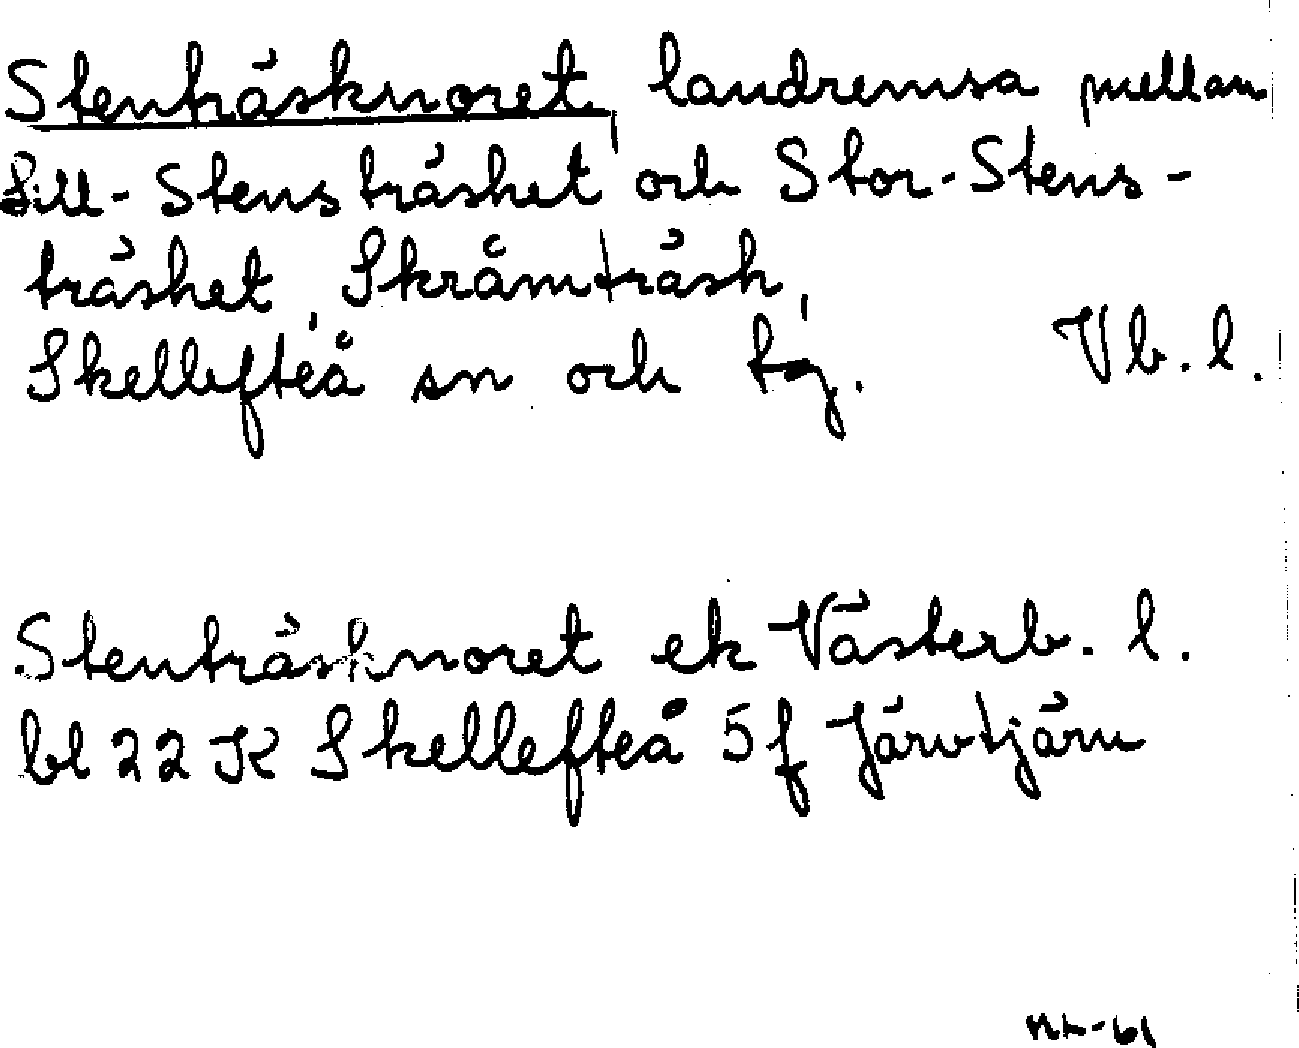 Stenträsknoret, landremsa mellan
Lill-Stensträsket och Stor-Stens-
träsket, Skråmträsk,
Skellefteå sn och tg. Vb. l.
Stenträsknoret ek Västerb. l.
bl 22 K Skellefteå 5f Järvtjärn